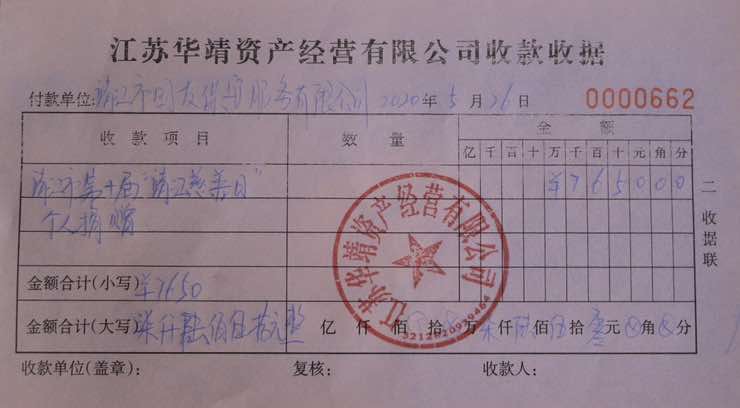 江苏华靖资产经营有限公司收款收据
付款单位: 靖江市国友保安服务有限公司 2020年5月26日 0000662
收款项目 数量 金额
亿千百十万千百十元角分
靖江市第十届"靖江慈善日" ¥765000
个人捐赠
二收据联
金额合计(小写) ¥7650
金额合计(大写) 柒仟陆佰伍拾元整 亿仟佰⊗拾⊗万柒仟陆佰伍拾零元⊗角⊗分
收款单位(盖章): 复核: 收款人:
江苏华靖资产经营有限公司